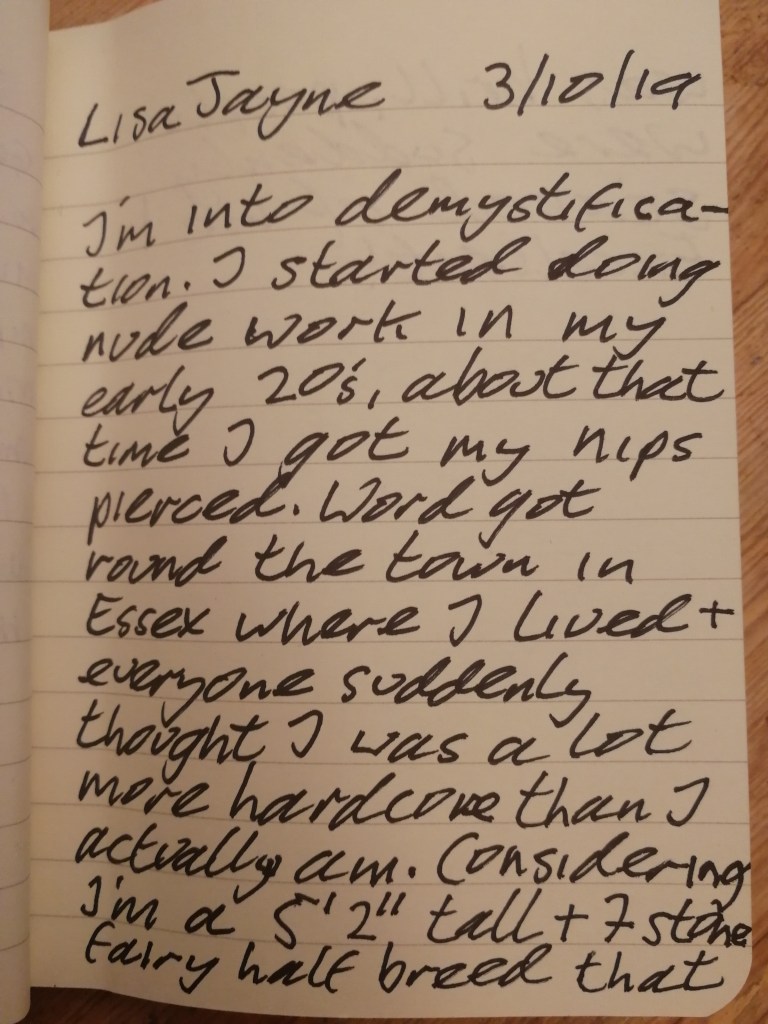 Lisa Jayne 3/10/19
I'm into demystifica-
tion. I started doing
nude work in my
early 20's, about that
time I got my nips
pierced. Word got
round the town in
Essex where I lived +
everyone suddenly
thought I was a lot
more hardcore than I
actually am. Considering
I'm a 5'2" tall + 7 stone
fairy half breed that